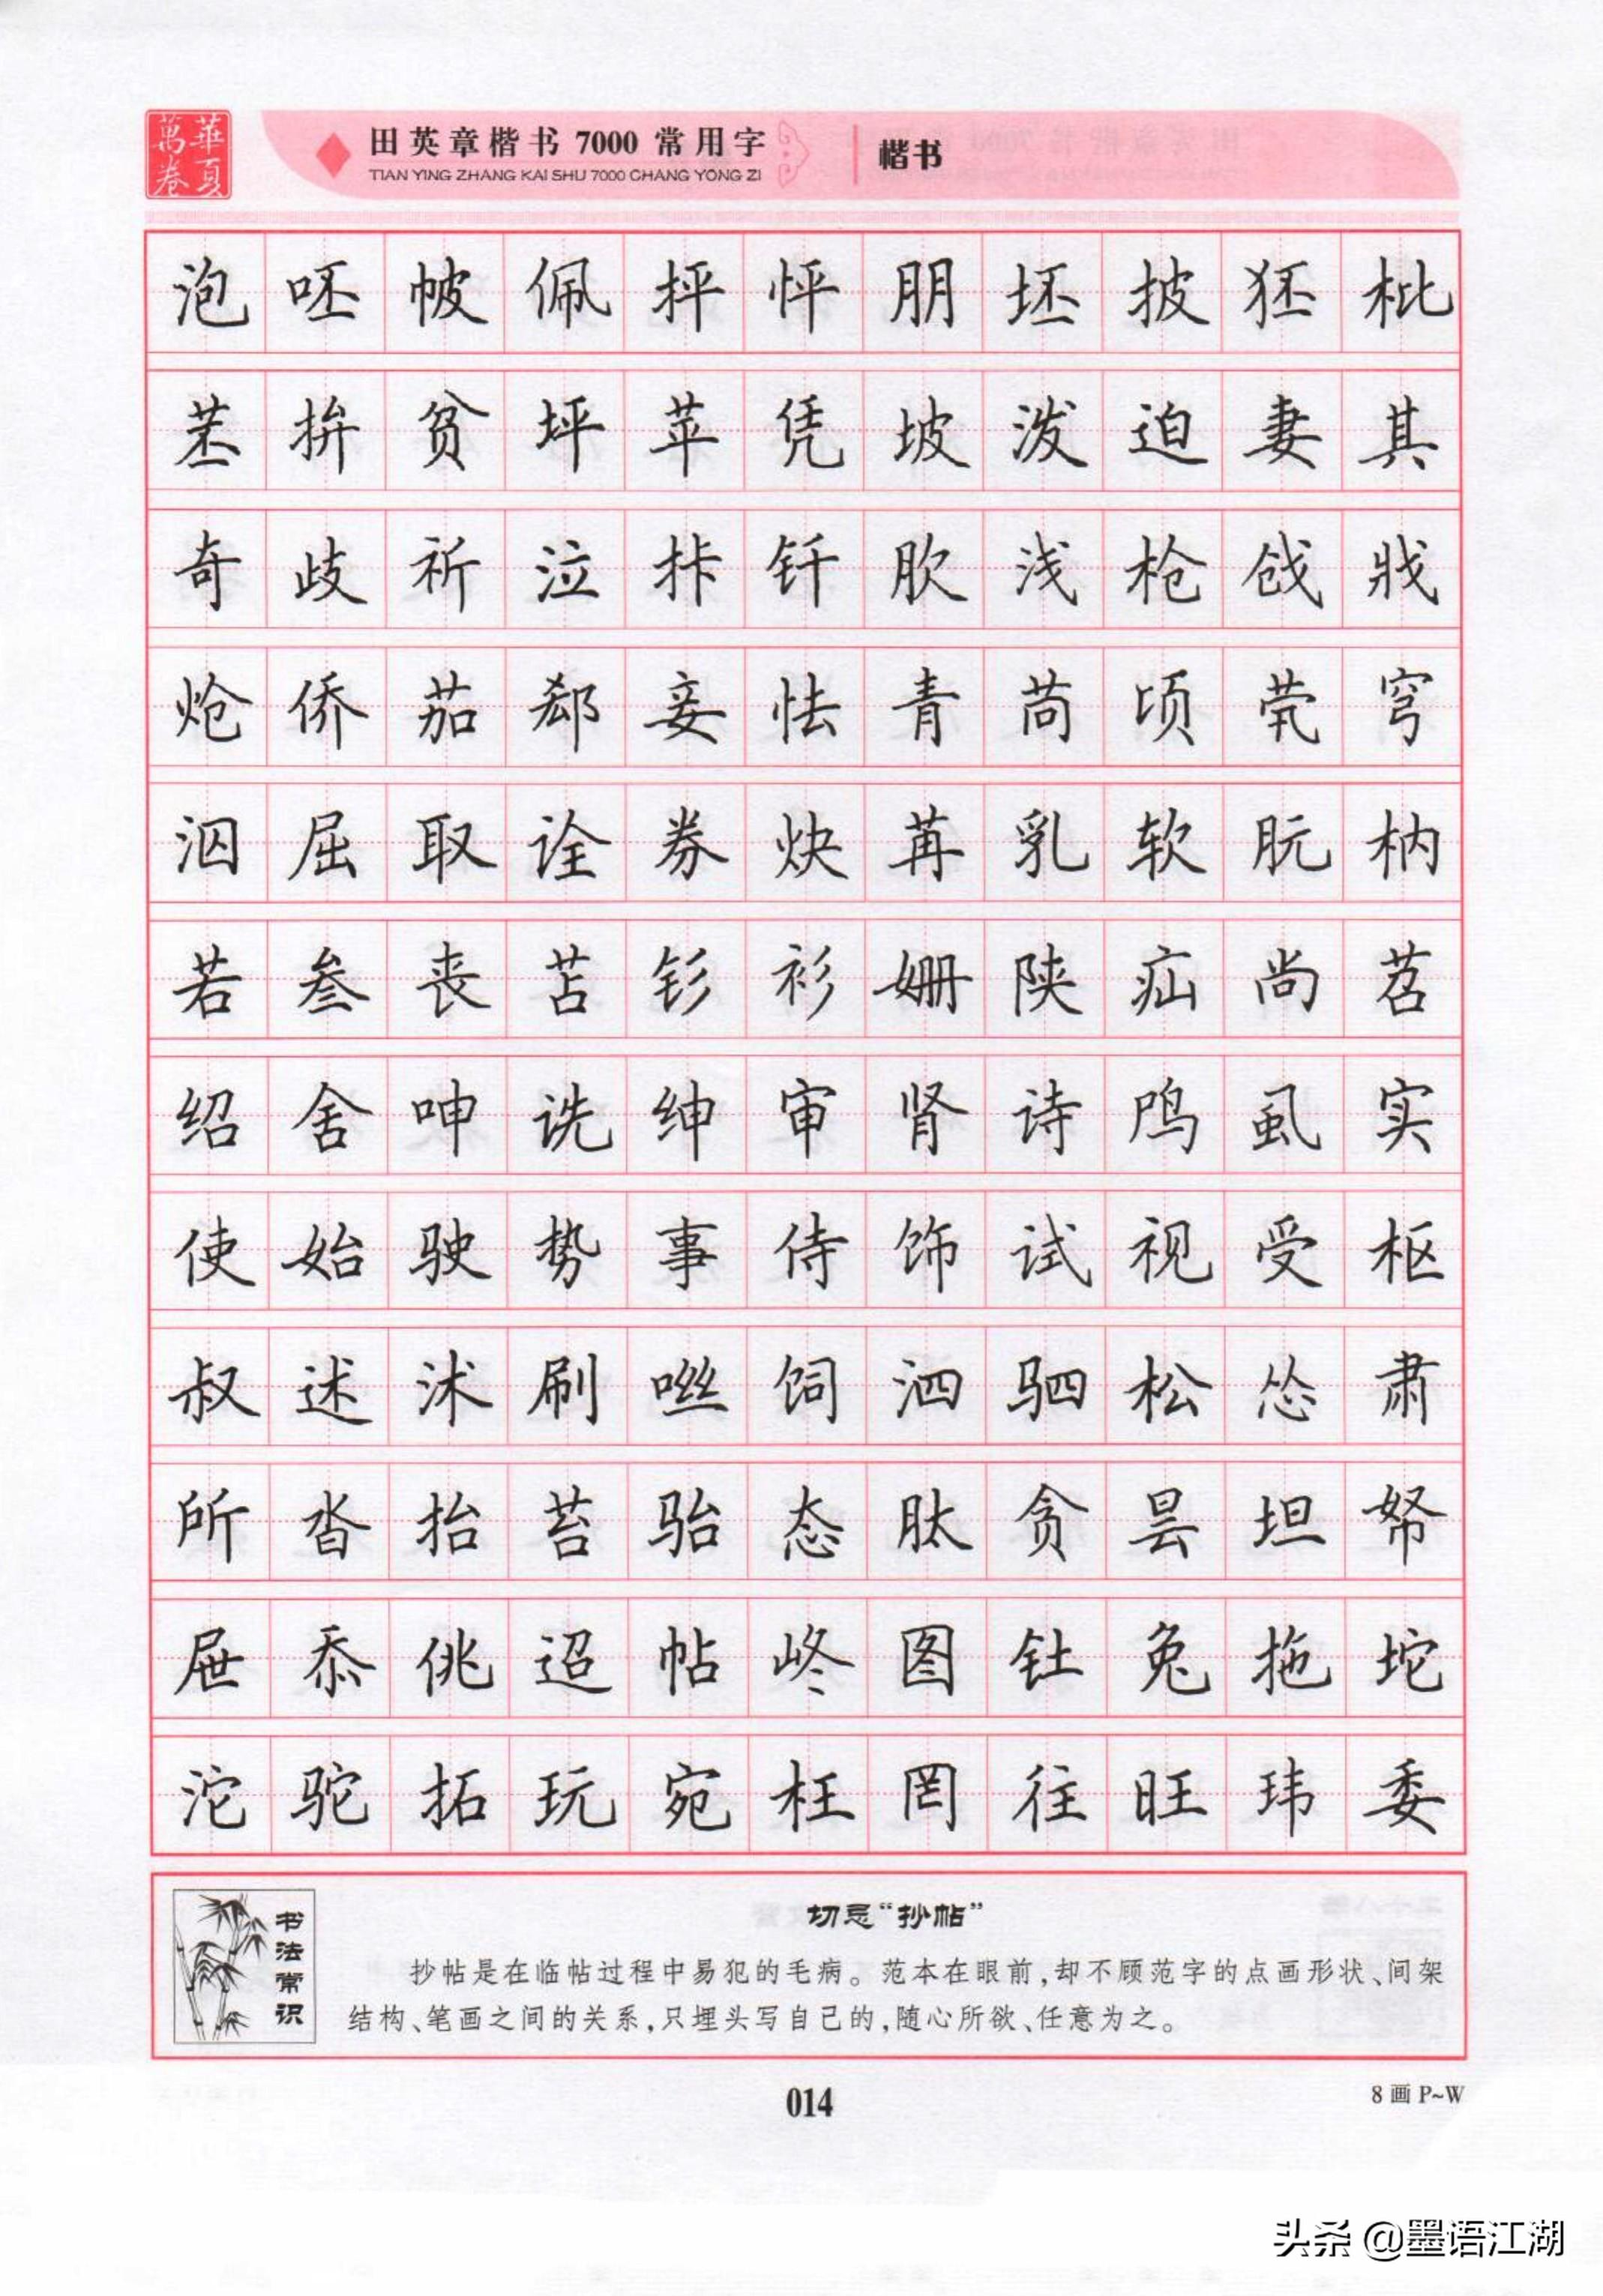 華夏萬卷
田英章楷书 7000 常用字
TIAN YING ZHANG KAI SHU 7000 CHANG YONG ZI
楷书
泡 呸 帔 佩 抨 怦 朋 坯 披 狉 枇
苤 拚 贫 坪 苹 凭 坡 泼 迫 妻 其
奇 歧 祈 泣 拤 钎 肷 浅 枪 戗 戕
炝 侨 茄 郄 妾 怯 青 苘 顷 茕 穹
泅 屈 取 诠 券 炔 苒 乳 软 朊 枘
若 叁 丧 苫 钐 衫 姗 陕 疝 尚 苕
绍 舍 呻 诜 绅 审 肾 诗 鸤 虱 实
使 始 驶 势 事 侍 饰 试 视 受 枢
叔 述 沭 刷 咝 饲 泗 驷 松 怂 肃
所 沓 抬 苔 骀 态 肽 贪 昙 坦 帑
屉 忝 佻 迢 帖 峂 图 钍 兔 拖 坨
沱 驼 拓 玩 宛 枉 罔 往 旺 玮 委
书法常识
切忌“抄帖”
抄帖是在临帖过程中易犯的毛病。范本在眼前，却不顾范字的点画形状、间架
结构、笔画之间的关系，只埋头写自己的，随心所欲、任意为之。
014
8 画 P~W
头条 @墨语江湖